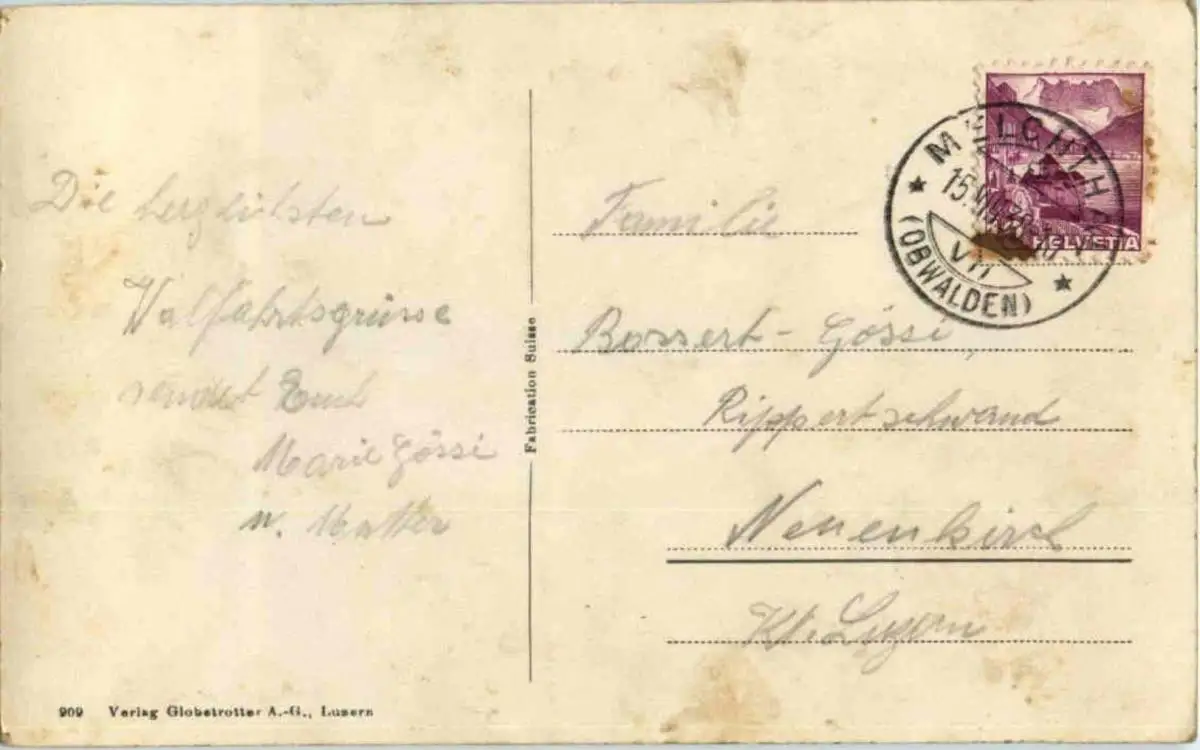 Die herzlichsten
Walfahrtsgrüsse
sendet Euch
Marie Gössi
u. Mutter
909 Verlag Globetrotter A.-G., Luzern
Fabrication Suisse
HELVETIA
MELCHTH
15.VII
VII
★ (OBWALDEN) ★
Familie
Bossert-Gössi
Rippertschwand
Neuenkirch
Kt. Luzern